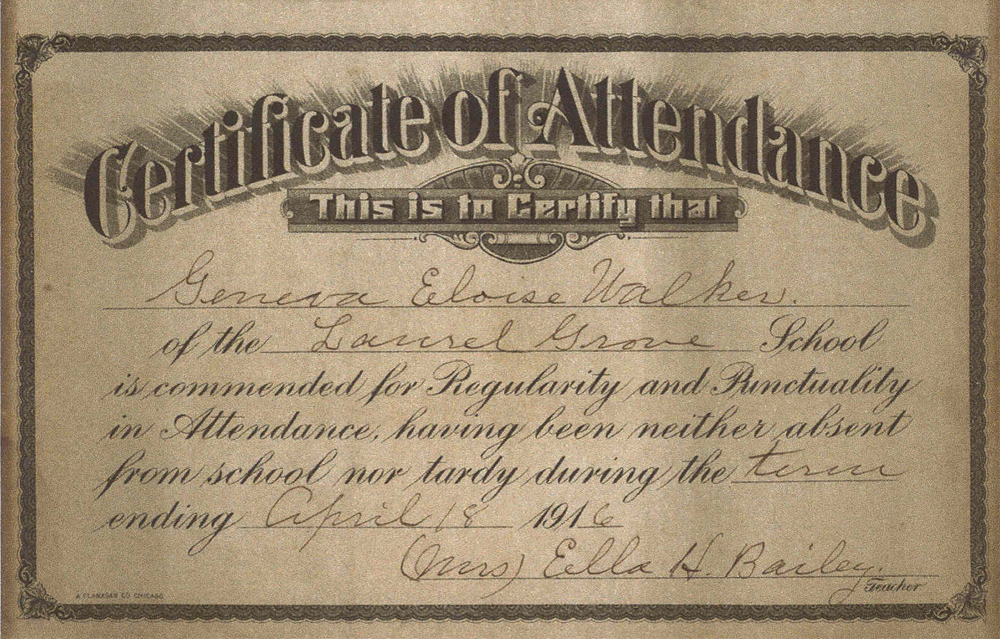 Certificate of Attendance
This is to Certify that
Geneva Eloise Walker.
of the Laurel Grove School
is commended for Regularity and Punctuality
in Attendance, having been neither absent
from school nor tardy during the term
ending April 18 1916
(Mrs) Ella H. Bailey.
Teacher
A FLANAGAN CO. CHICAGO